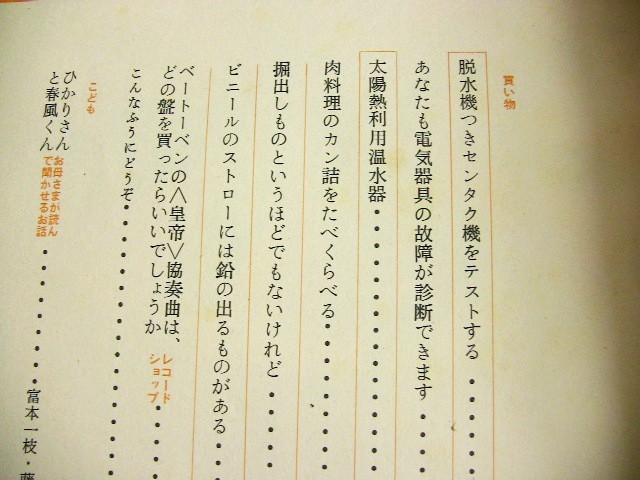 買い物
脱水機つきセンタク機をテストする・・・・・
あなたも電気器具の故障が診断できます・・・・
太陽熱利用温水器・・・・・・・・・・・・・
肉料理のカン詰をたべくらべる・・・・・・・・
掘出しものというほどでもないけれど・・・・・
ビニールのストローには鉛の出るものがある・・・
ベートーベンの〈皇帝〉協奏曲は、
どの盤を買ったらいいでしょうか
レコード
ショップ・・・・
こんなふうにどうぞ・・・・・・・・・・・・・
こども
ひかりさん
と春風くん
お母さまが読ん
で聞かせるお話・・・・・・・富本一枝・藤